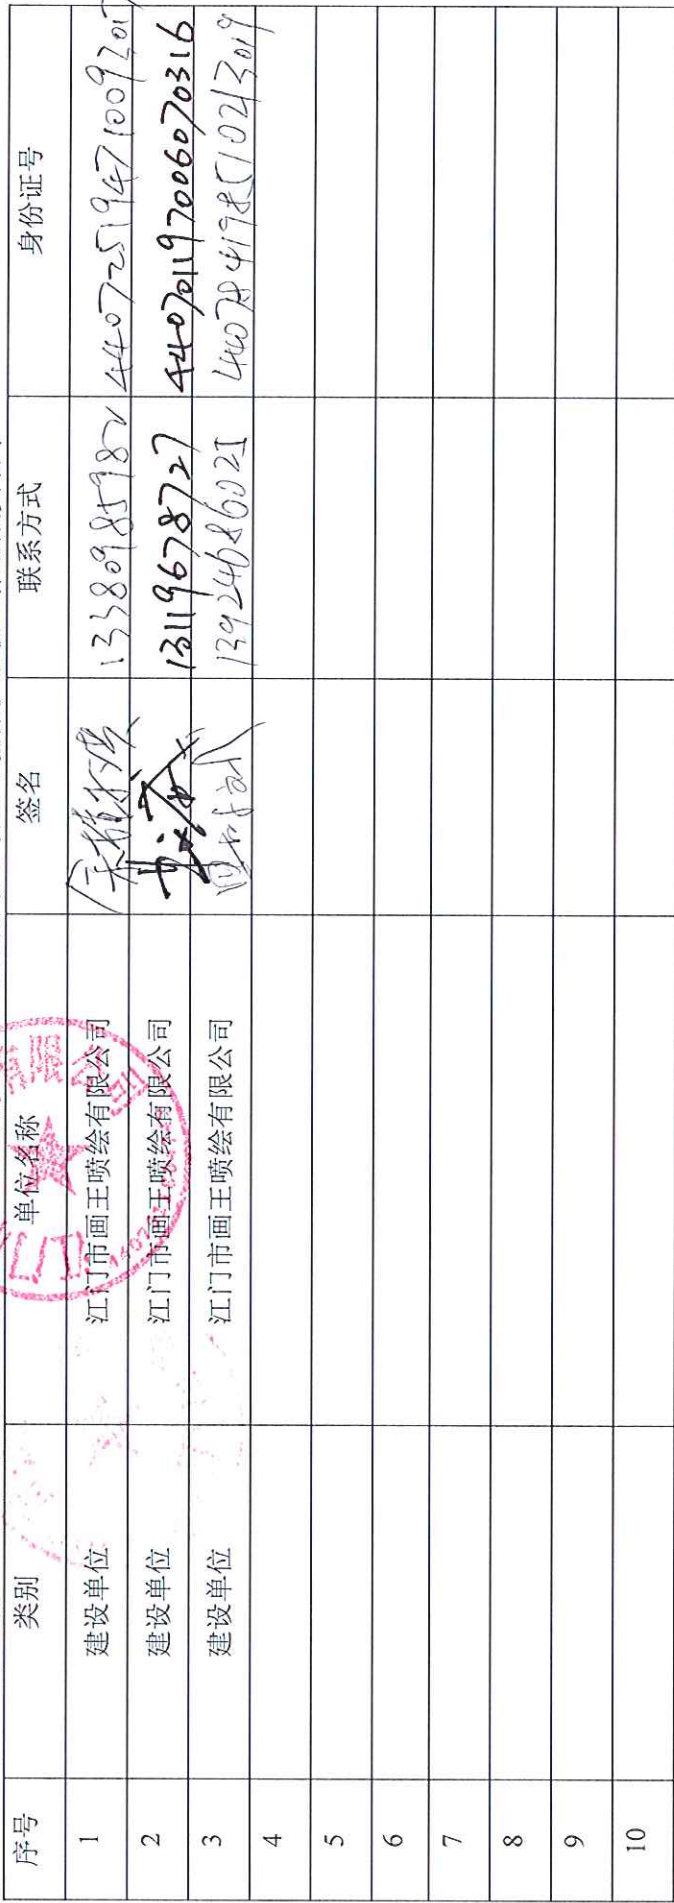 序号 类别 单位名称 签名 联系方式 身份证号
1 建设单位 江门市画王喷绘有限公司 13380985982 440725194710092015
2 建设单位 江门市画王喷绘有限公司 13119678727 440701197006070316
3 建设单位 江门市画王喷绘有限公司 13924686021 440784198510213019
4
5
6
7
8
9
10